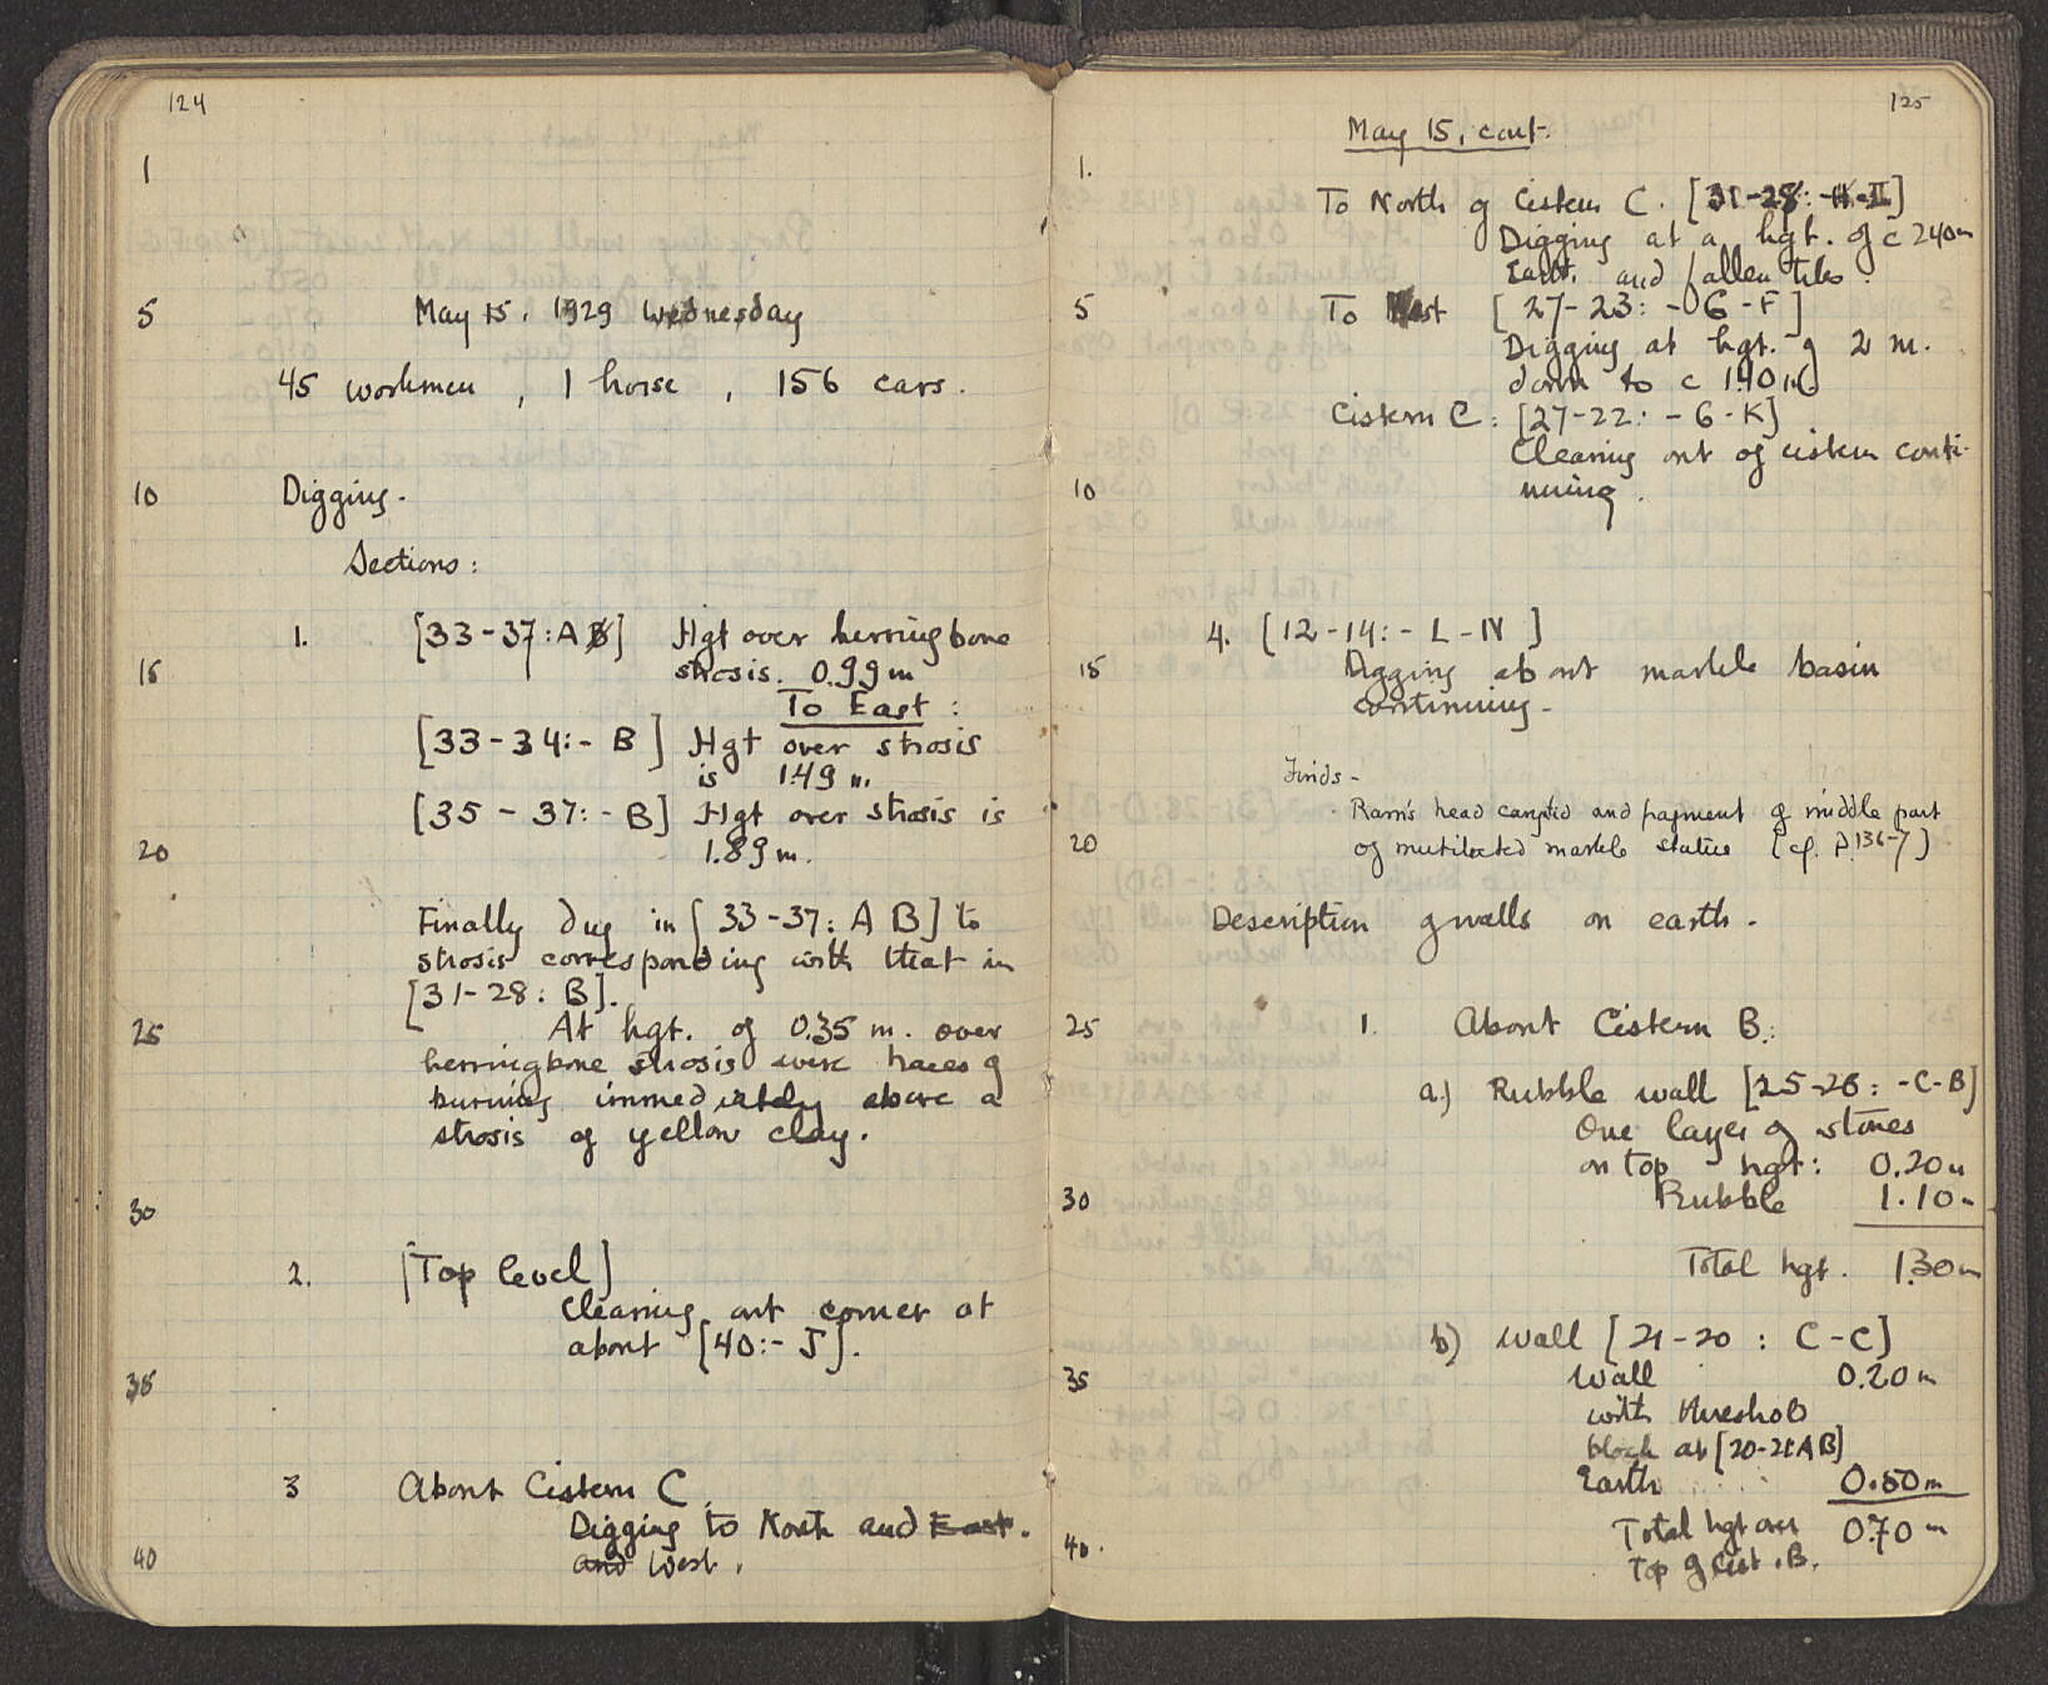 124
1
5
May 15. 1929 Wednesday
45 workmen, 1 horse, 156 cars.
10
Digging.
Sections:
1. [33-37: A B] Hgt over herringbone
15
strosis. 0.99 m
To East:
[33-34:- B] Hgt over strosis
is 1.49 m.
[35-37:- B] Hgt over strosis is
20
1.89 m.
Finally dug in [33-37: A B] to
strosis corresponding with that in
[31-28: B].
25
At hgt. of 0.35 m. over
herringbone strosis were traces of
burning immediately above a
strosis of yellow clay.
30
2. [Top level]
Clearing out corner at
about [40:- J].
35
3 About Cistern C.
Digging to North and East.
40
and West.
125
May 15, cont.
1.
To North of Cistern C. [31-28:
Digging at a hgt. of c 2.40 m
Earth and fallen tiles.
5
To West [27-23: - G - F]
Digging at hgt. of 2 m.
down to c 1.40 m.
Cistern C: [27-22: - G - K]
Clearing out of cistern conti-
10
nuing.
4. [12-14: - L - N]
15
Digging about marble basin
continuing.
Finds -
Ram's head and fragment of middle part
20
of mutilated marble statue [cf. p. 136-7]
Description of walls on earth.
25
1. About Cistern B.:
a.) Rubble wall [25-26: - C - B]
One layer of stones
on top hgt: 0.20 m
30
Rubble 1.10 m
Total hgt. 1.30 m
b) Wall [21-20: C - C]
35
Wall 0.20 m
with threshold
block at [20-21: A B]
Earth 0.50 m
Total hgt over 0.70 m
40.
top of Cist. B.